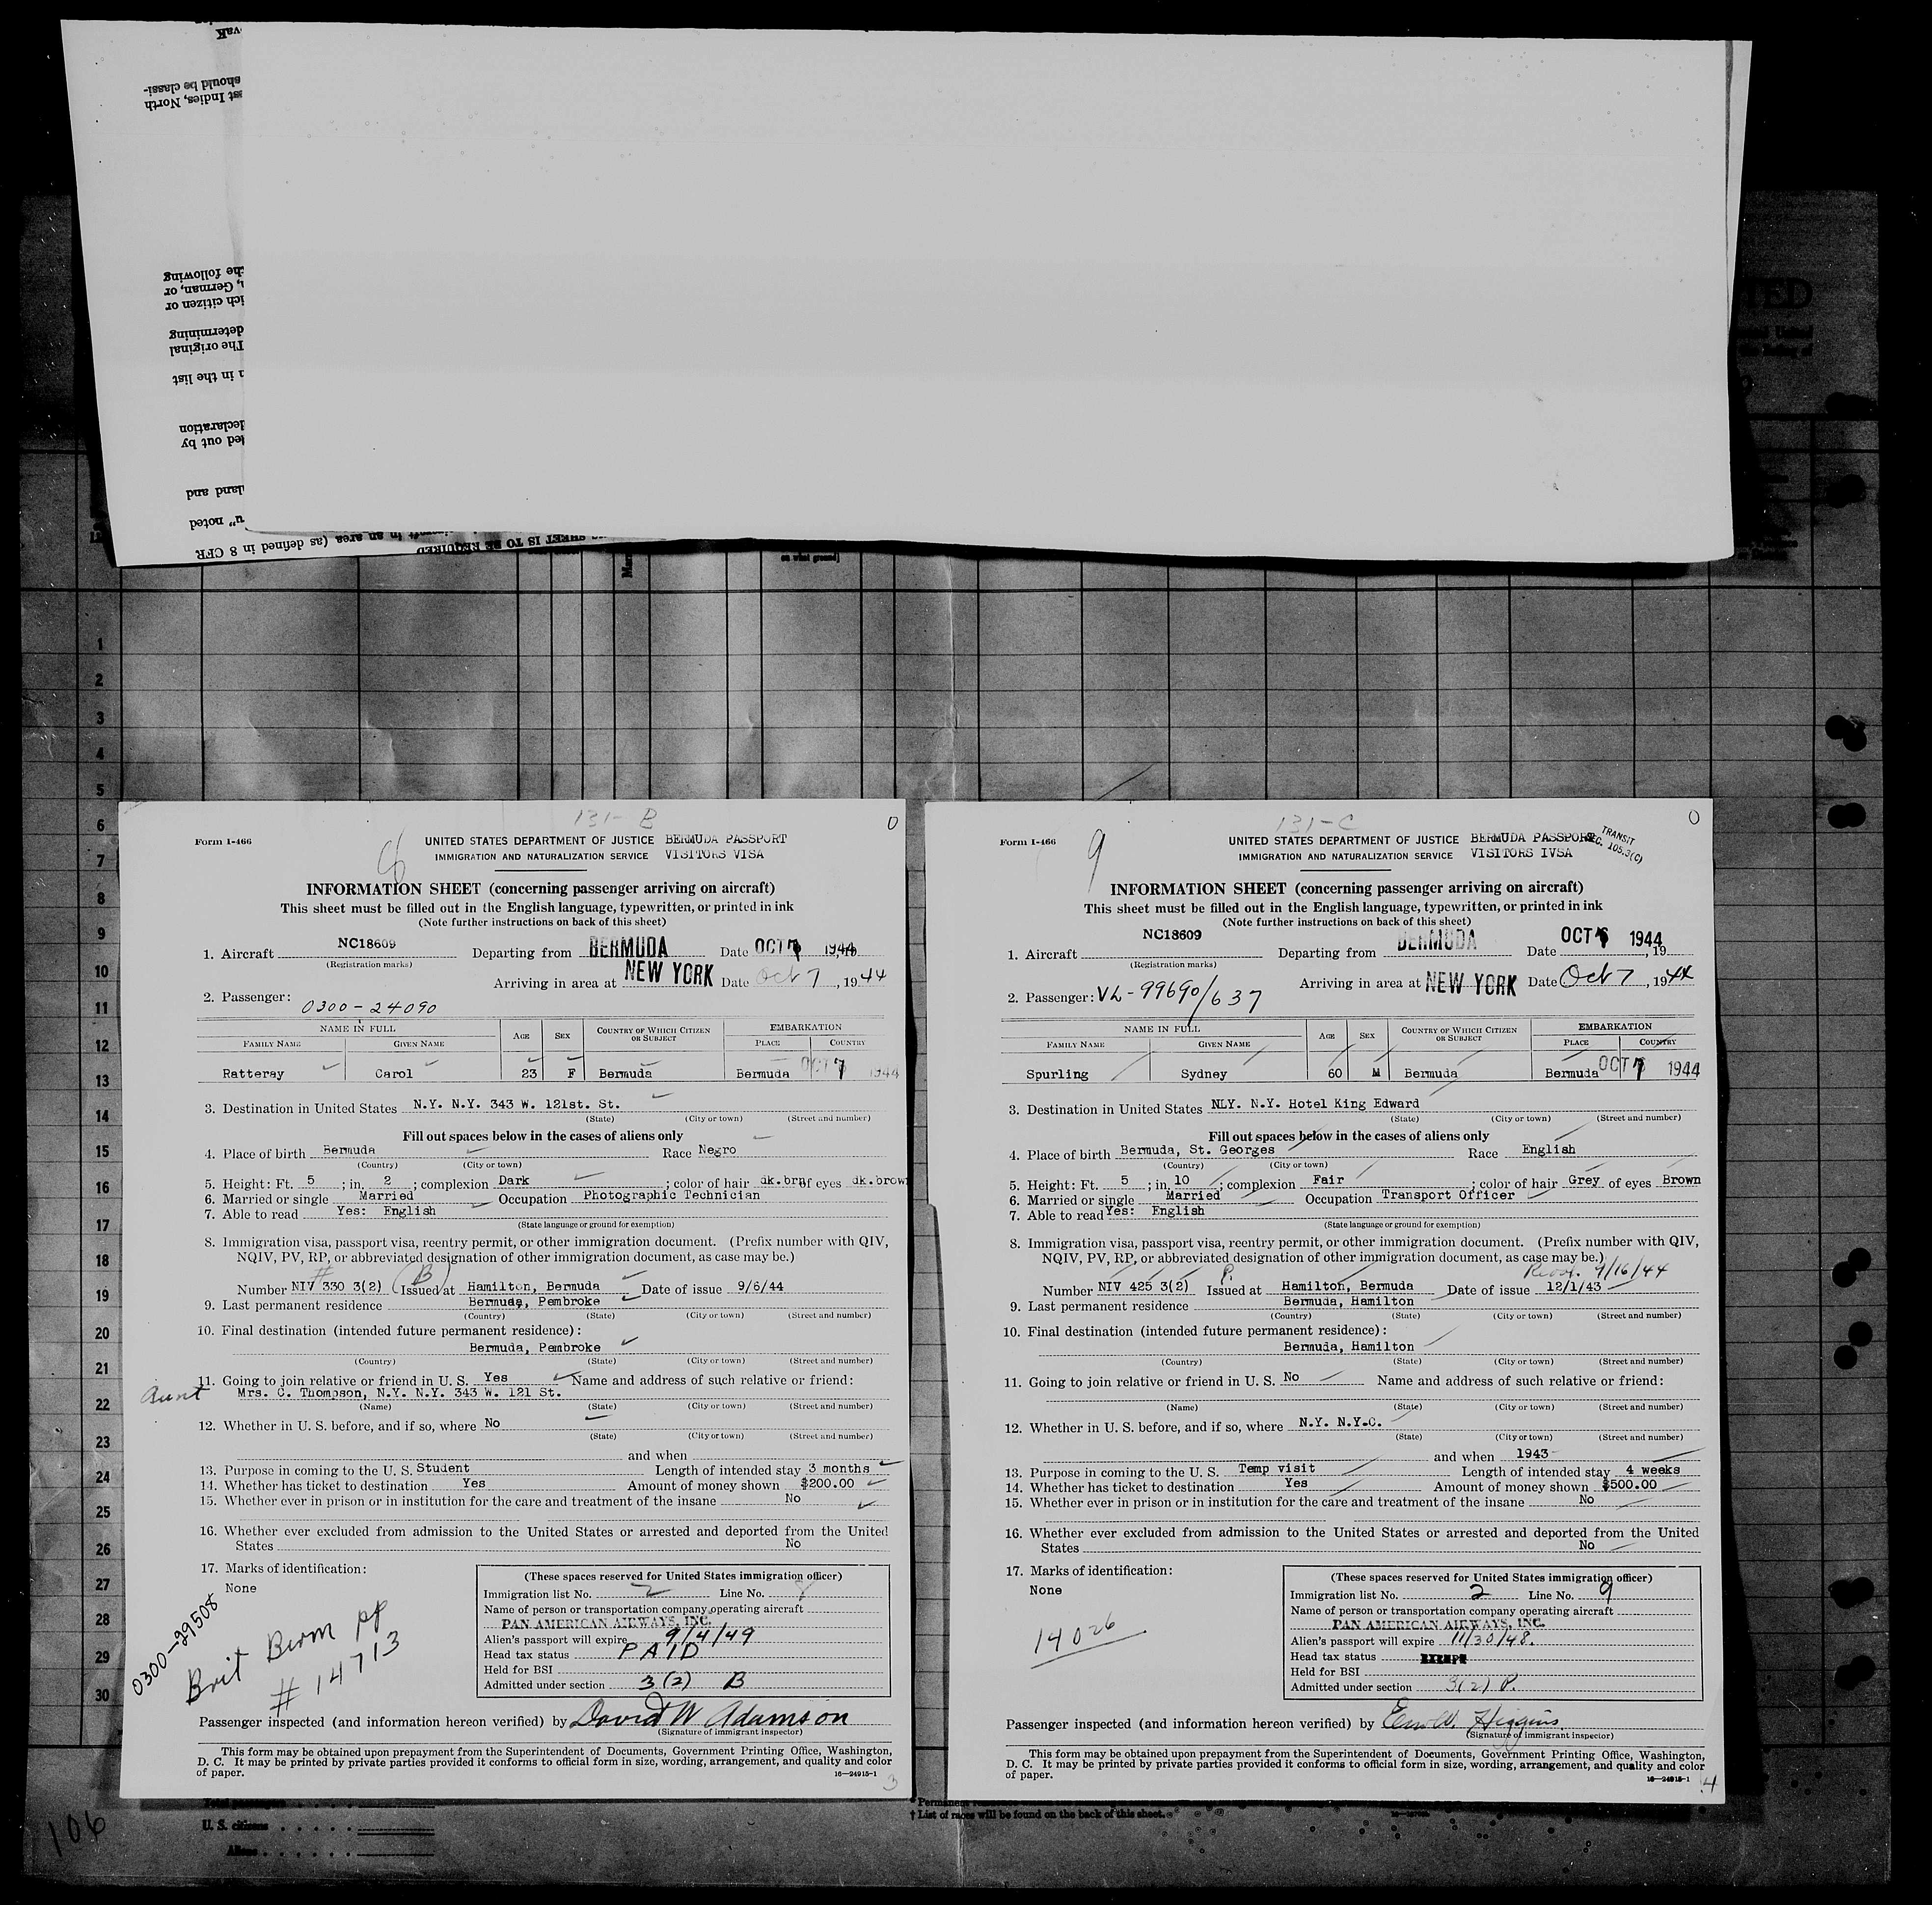 vaK
should be classi-
st Indies, North
he following
, German, or
ich citizen or
determining
The original
n in the list
declaration
led out by
land and
u" noted
aircraft in an area (as defined in 8 CFR
SHEET IS TO BE REQUIRED
on what ground]
1
2
3
4
5
6
7
8
9
10
11
12
13
14
15
16
17
18
19
20
21
22
23
24
25
26
27
28
29
30
131-B
0
Form I-466
8
UNITED STATES DEPARTMENT OF JUSTICE BERMUDA PASSPORT
IMMIGRATION AND NATURALIZATION SERVICE VISITORS VISA
INFORMATION SHEET (concerning passenger arriving on aircraft)
This sheet must be filled out in the English language, typewritten, or printed in ink
(Note further instructions on back of this sheet)
1. Aircraft NC18609 Departing from BERMUDA Date OCT 7 1944
(Registration marks)
Arriving in area at NEW YORK Date Oct 7, 1944
2. Passenger: 0300-24090
NAME IN FULL AGE SEX COUNTRY OF WHICH CITIZEN OR SUBJECT EMBARKATION
FAMILY NAME GIVEN NAME PLACE COUNTRY
Ratteray Carol 23 F Bermuda Bermuda OCT 7 1944
3. Destination in United States N.Y. N.Y. 343 W. 121st. St.
(State) (City or town) (Street and number)
Fill out spaces below in the cases of aliens only
4. Place of birth Bermuda Race Negro
(Country) (City or town)
5. Height: Ft. 5; in. 2; complexion Dark; color of hair dk.brn of eyes dk.brown
6. Married or single Married Occupation Photographic Technician
7. Able to read Yes: English
(State language or ground for exemption)
8. Immigration visa, passport visa, reentry permit, or other immigration document. (Prefix number with QIV,
NQIV, PV, RP, or abbreviated designation of other immigration document, as case may be.)
# (B)
Number NIV 330 3(2) Issued at Hamilton, Bermuda Date of issue 9/6/44
9. Last permanent residence Bermuda, Pembroke
(Country) (State) (City or town) (Street and number)
10. Final destination (intended future permanent residence):
Bermuda, Pembroke
(Country) (State) (City or town) (Street and number)
11. Going to join relative or friend in U. S. Yes Name and address of such relative or friend:
Aunt Mrs. C. Thompson, N.Y. N.Y. 343 W. 121 St.
(Name) (State) (City or town) (Street and number)
12. Whether in U. S. before, and if so, where No
(State) (City or town) (Street and number)
and when
13. Purpose in coming to the U. S. Student Length of intended stay 3 months
14. Whether has ticket to destination Yes Amount of money shown $200.00
15. Whether ever in prison or in institution for the care and treatment of the insane No
16. Whether ever excluded from admission to the United States or arrested and deported from the United
States No
17. Marks of identification:
None
0300-29508
Brit Berm pp
# 14713
(These spaces reserved for United States immigration officer)
Immigration list No. 2 Line No. 8
Name of person or transportation company operating aircraft
PAN AMERICAN AIRWAYS, INC.
Alien's passport will expire 9/4/49
Head tax status PAID
Held for BSI
Admitted under section 3(2) B
Passenger inspected (and information hereon verified) by David W Adamson
(Signature of immigrant inspector)
This form may be obtained upon prepayment from the Superintendent of Documents, Government Printing Office, Washington,
D. C. It may be printed by private parties provided it conforms to official form in size, wording, arrangement, and quality and color
of paper. 16—24915-1
3
131-C
0
Form I-466
9
UNITED STATES DEPARTMENT OF JUSTICE BERMUDA PASSPORT
IMMIGRATION AND NATURALIZATION SERVICE VISITORS IVSA
TRANSIT
SEC. 105.3(C)
INFORMATION SHEET (concerning passenger arriving on aircraft)
This sheet must be filled out in the English language, typewritten, or printed in ink
(Note further instructions on back of this sheet)
1. Aircraft NC18609 Departing from BERMUDA Date OCT 1944, 19
(Registration marks)
Arriving in area at NEW YORK Date Oct 7, 1944
2. Passenger: VL-99690/637
NAME IN FULL AGE SEX COUNTRY OF WHICH CITIZEN OR SUBJECT EMBARKATION
FAMILY NAME GIVEN NAME PLACE COUNTRY
Spurling Sydney 60 M Bermuda Bermuda OCT 7 1944
3. Destination in United States NLY. N.Y. Hotel King Edward
(State) (City or town) (Street and number)
Fill out spaces below in the cases of aliens only
4. Place of birth Bermuda, St. Georges Race English
(Country) (City or town)
5. Height: Ft. 5; in. 10; complexion Fair; color of hair Grey of eyes Brown
6. Married or single Married Occupation Transport Officer
7. Able to read Yes: English
(State language or ground for exemption)
8. Immigration visa, passport visa, reentry permit, or other immigration document. (Prefix number with QIV,
NQIV, PV, RP, or abbreviated designation of other immigration document, as case may be.)
P. 9/16/44
Number NIV 425 3(2) Issued at Hamilton, Bermuda Date of issue 12/1/43
9. Last permanent residence Bermuda, Hamilton
(Country) (State) (City or town) (Street and number)
10. Final destination (intended future permanent residence):
Bermuda, Hamilton
(Country) (State) (City or town) (Street and number)
11. Going to join relative or friend in U. S. No Name and address of such relative or friend:
(Name) (State) (City or town) (Street and number)
12. Whether in U. S. before, and if so, where N.Y. N.Y.C.
(State) (City or town) (Street and number)
and when 1943
13. Purpose in coming to the U. S. Temp visit Length of intended stay 4 weeks
14. Whether has ticket to destination Yes Amount of money shown $500.00
15. Whether ever in prison or in institution for the care and treatment of the insane No
16. Whether ever excluded from admission to the United States or arrested and deported from the United
States No
17. Marks of identification:
None
14026
(These spaces reserved for United States immigration officer)
Immigration list No. 2 Line No. 9
Name of person or transportation company operating aircraft
PAN AMERICAN AIRWAYS, INC.
Alien's passport will expire 11/30/48.
Head tax status EXEMPT
Held for BSI
Admitted under section 3(2) P.
Passenger inspected (and information hereon verified) by W. Higgins
(Signature of immigrant inspector)
This form may be obtained upon prepayment from the Superintendent of Documents, Government Printing Office, Washington,
D. C. It may be printed by private parties provided it conforms to official form in size, wording, arrangement, and quality and color
of paper. 16—24915-1
4
† List of races will be found on the back of this sheet.
U. S. citizens
Aliens
106